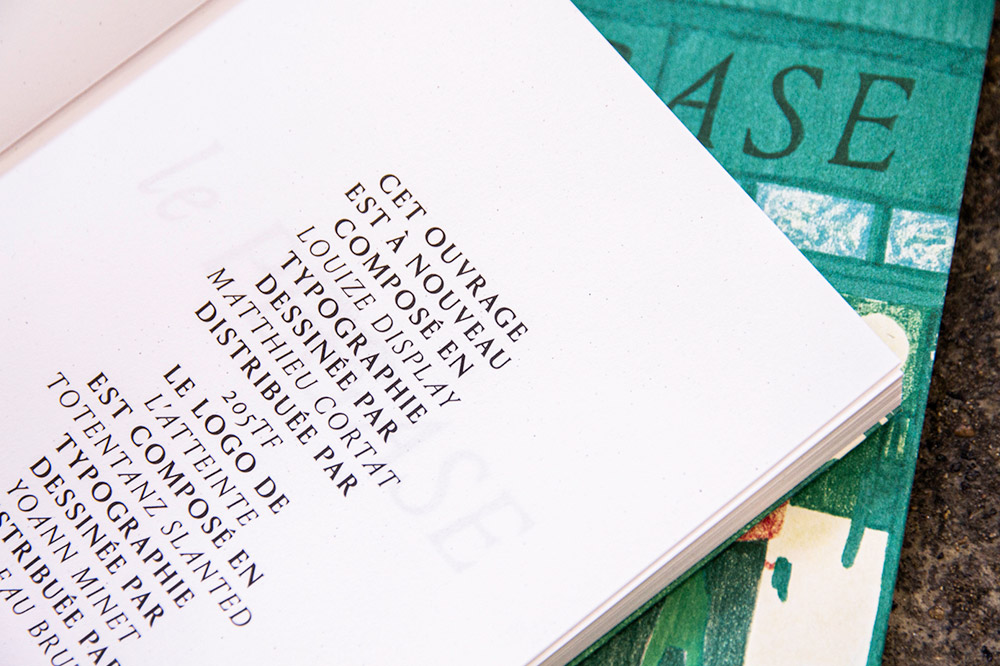 ASE
CET OUVRAGE
EST À NOUVEAU
COMPOSÉ EN
LOUIZE DISPLAY
TYPOGRAPHIE
DESSINÉE PAR
MATTHIEU CORTAT
DISTRIBUÉE PAR
205TF
LE LOGO DE
L'ATTEINTE
EST COMPOSÉ EN
TOTENTANZ SLANTED
TYPOGRAPHIE
DESSINÉE PAR
YOANN MINET
STRIBUÉE PAR
EAU BRU
le
ASE